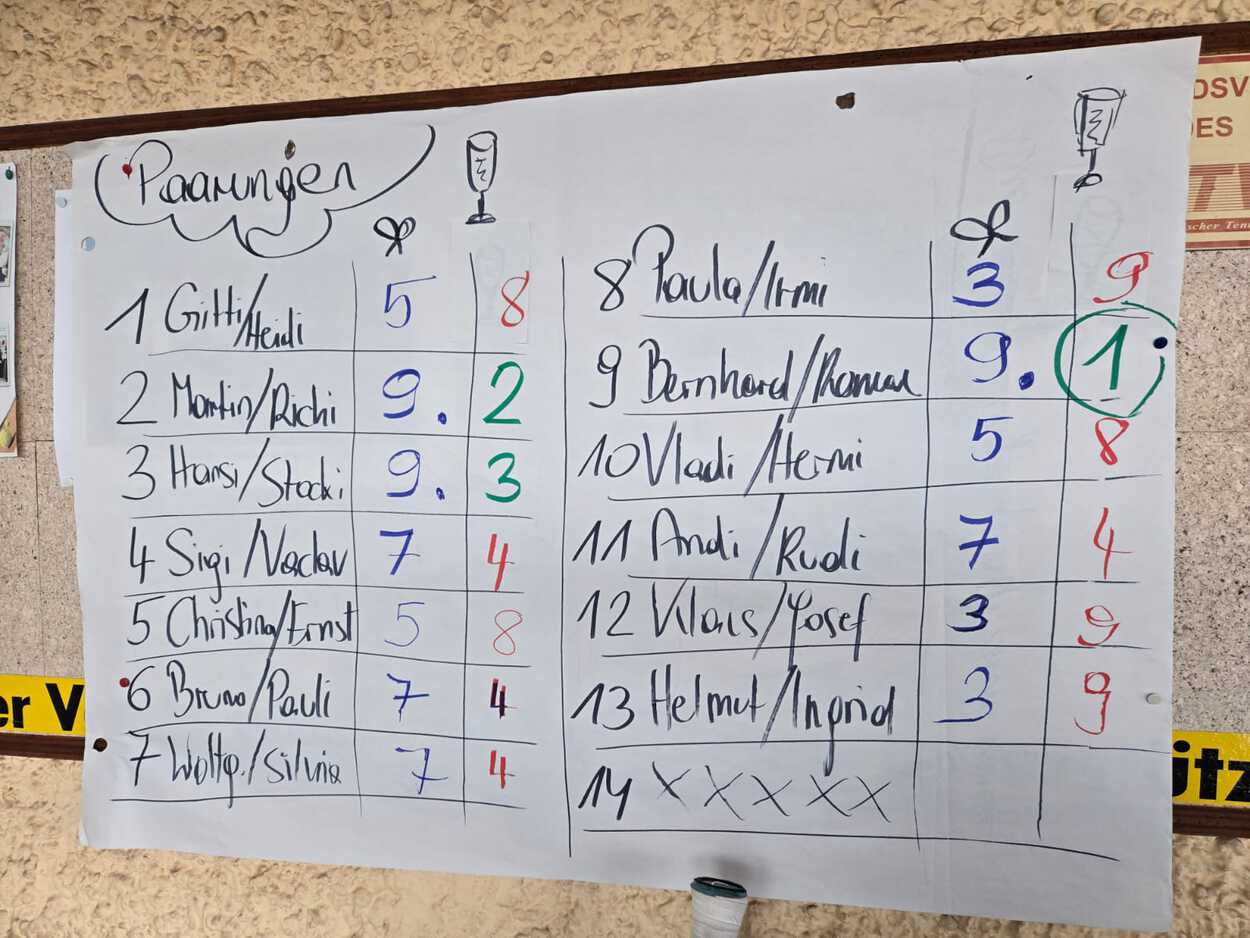 Paarungen
1 Gitti/Heidi 5 8
2 Martin/Richi 9. 2
3 Hansi/Stocki 9. 3
4 Sigi/Vaclav 7 4
5 Christina/Ernst 5 8
6 Bruno/Pauli 7 4
7 Wolfg./Silvia 7 4
8 Paula/Irmi 3 9
9 Bernhard/Roman 9. 1
10 Vladi/Hermi 5 8
11 Andi/Rudi 7 4
12 Klaus/Josef 3 9
13 Helmut/Ingrid 3 9
14 X X X X X
DSV
DES
TV
scher Ten
er V
ütz